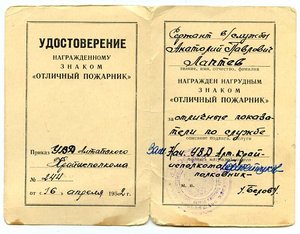 УДОСТОВЕРЕНИЕ
НАГРАЖДЕННОМУ
ЗНАКОМ
«ОТЛИЧНЫЙ ПОЖАРНИК»
Приказ УВД Алтайского
Крайисполкома
№ 244
от «16» апреля 1962 г.
Сержант в/службы
Анатолий Павлович
Лаптев
звание, имя, отчество, фамилия
НАГРАЖДЕН НАГРУДНЫМ
ЗНАКОМ
«ОТЛИЧНЫЙ ПОЖАРНИК»
за отличные показа-
тели по службе
Зам. Нач. УВД Алт. край-
исполкома
полковник-
М. П.